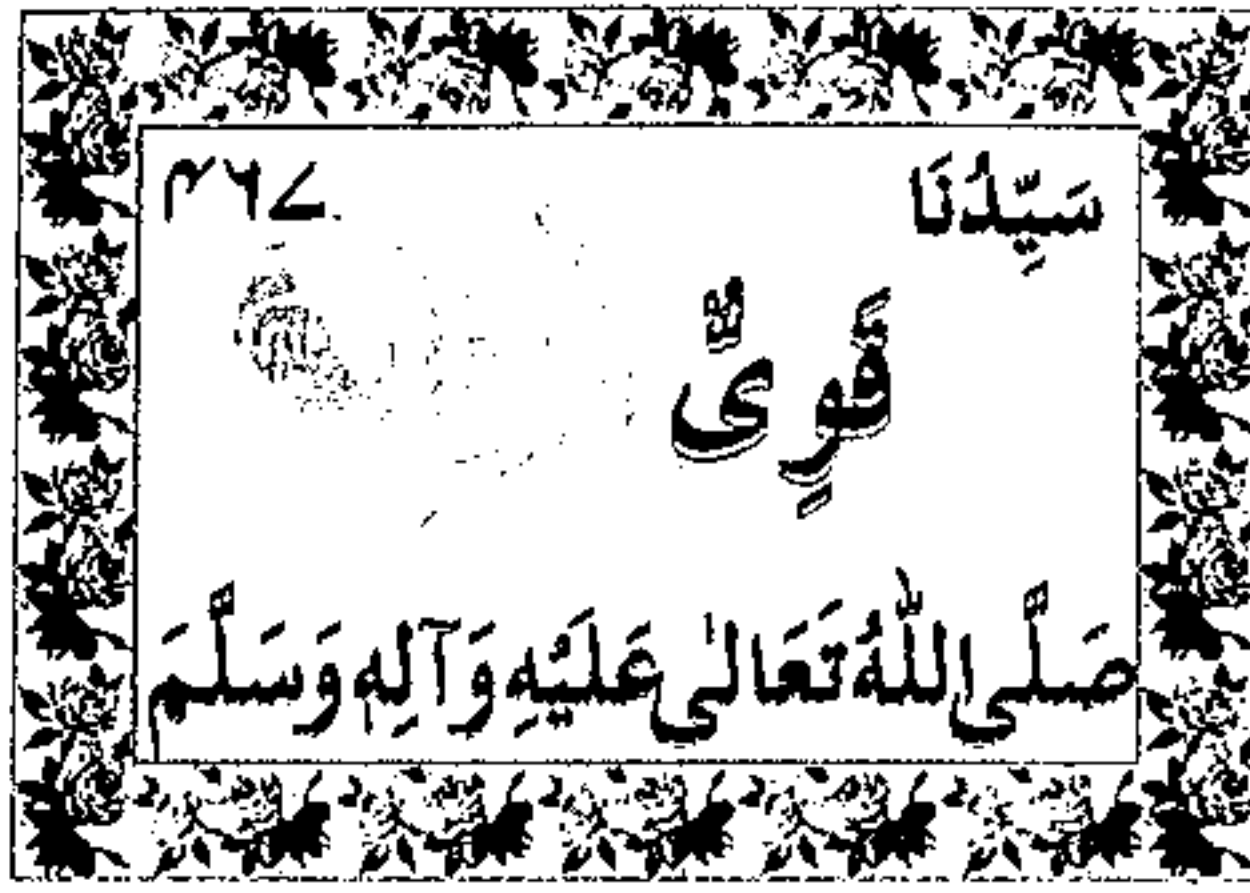 سَيِّدُنَا ۴۶۷
قَوِىٌّ
صَلَّى اللّٰهُ تَعَالٰى عَلَيْهِ وَآلِهٖ وَسَلَّمَ